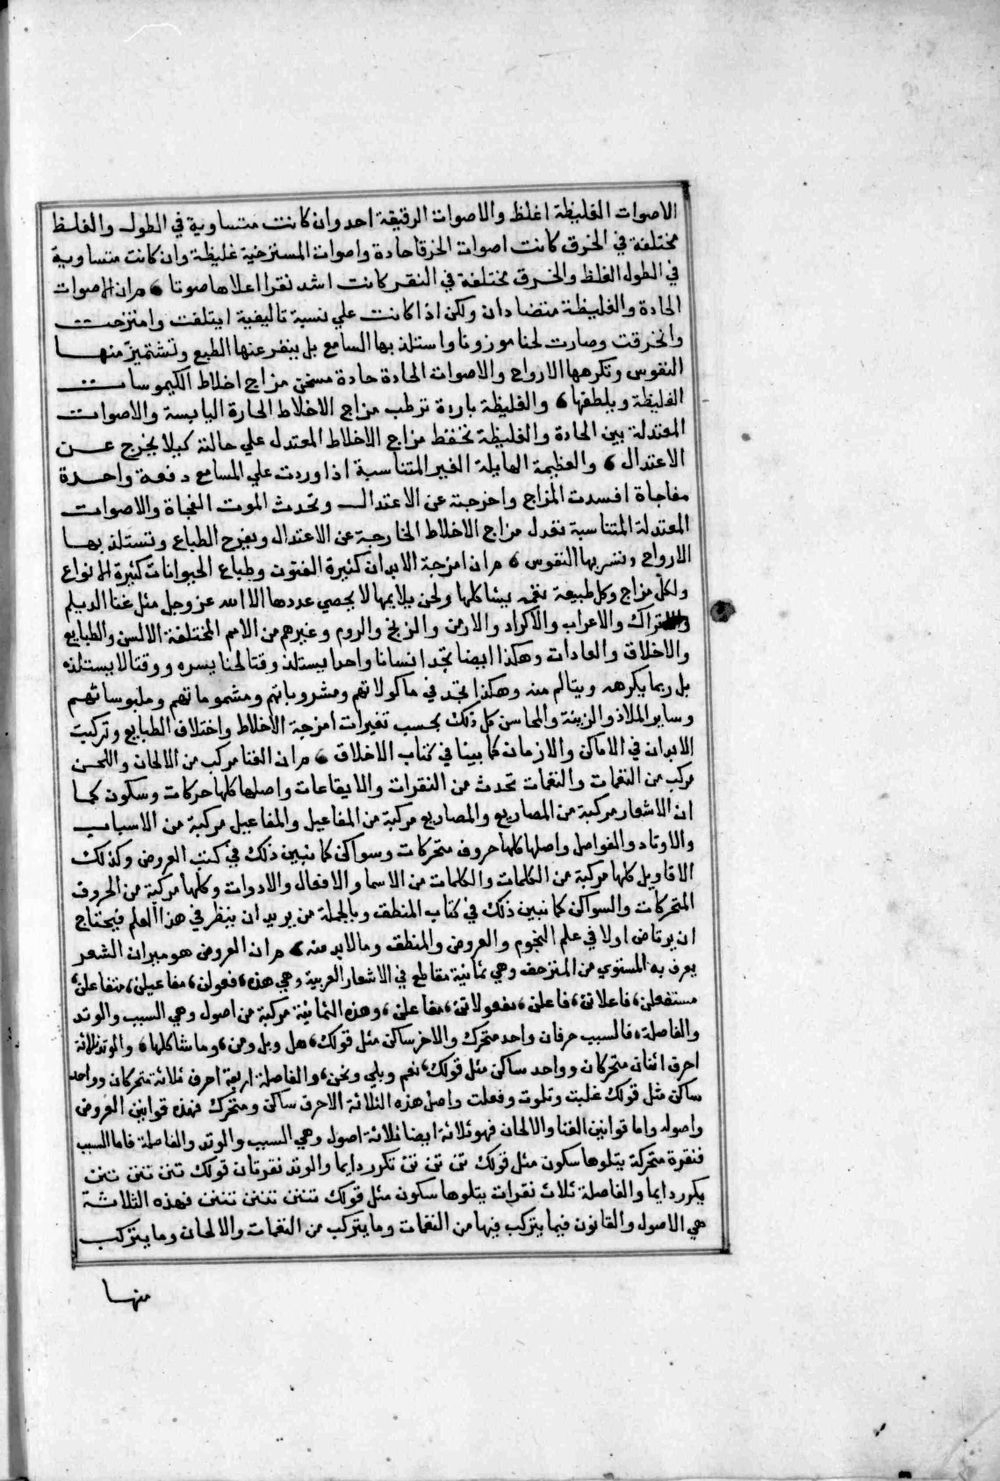 الاصوات الغليظة اغلظ والاصوات الرقيقة احد وان كانت متساوية في الطول والغلظ
مختلفة في الخرق كانت اصوات الخرقا حادة واصوات المسترخية غليظة وان كانت متساوية
في الطول الغلظ والخرق مختلفة في النقر كانت اشد نقرا اعلاها صوتا ثم ان الاصوات
الحادة والغليظة متضادان ولكن اذا كانت علي نسبة تاليفية ايتلفت وامتزجت
وانخرقت وصارت لحنا موزونا واستلذ بها السامع بل ينفر عنها الطبع وتشتميز منها
النفوس وتكرهها الارواح والاصوات الحادة حادة مسخن مزاج اخلاط الكيموسات
الغليظة ويلطفها والغليظة باردة ترطب مزاج الاخلاط الحارة اليابسة والاصوات
المعتدلة بين الحادة والغليظة تحفظ مزاج الاخلاط المعتدل علي حالته كيلا يخرج عن
الاعتدال والعظيمة الهايلة الغير المتناسبة اذا وردت علي المسامع دفعة واحدة
مفاجاة افسدت المزاج واخرجته عن الاعتدال وتحدث الموت الفجاة والاصوات
المعتدلة المتناسبة تعدل مزاج الاخلاط الخارجة عن الاعتدال ويفرح الطباع وتستلذ بها
الارواح وتسر بها النفوس ثم ان امزجة الابدان كثيرة الفنون وطباع الحيوانات كثيرة الانواع
ولكل مزاج وكل طبيعة نغمه يشاكلها ولحن يلايمها لا يحصي عددها الا الله عز وجل مثل غنا الديلم
والاتراك والاعراب والاكراد والارمن والزنج والروم وغيرهم من الامم المختلفة الالسن والطبايع
والاخلاق والعادات وهكذا ايضا تجد انسانا واحدا يستلذ وقتا لحنا يسره ووقتا لا يستلذه
بل ربما يكرهه ويتالم منه وهكذا تجد في ماكولاتهم ومشروباتهم ومشموماتهم وملبوساتهم
وساير الملاذ والزينة والمحاسن كل ذلك بحسب تغيرات امزجة الاخلاط واختلاف الطبايع وتركيب
الابدان في الاماكن والازمان كما بينا في كتاب الاخلاق ثم ان الغنا مركب من الالحان واللحن
مركب من النغمات والنغمات تحدث من النقرات والايقاعات واصلها كلها حركات وسكون كما
ان الاشعار مركبة من المصاريع والمصاريع مركبة من المفاعيل والمفاعيل مركبة من الاسباب
والاوتاد والفواصل واصلها كلها حروف متحركات وسواكن كما نبين ذلك في كتب العروض وكذلك
الاقاويل كلها مركبة من الكلمات والكلمات من الاسما والافعال والادوات وكلها مركبة من الحروف
المتحركات والسواكن كما نبين ذلك في كتاب المنطق وبالجملة من يريد ان ينظر في هذا العلم فيحتاج
ان يرتاض اولا في علم النجوم والعروض والمنطق وما لابد منه ثم ان العروض هو ميزان الشعر
يعرف به المستوي من المنزحف وهي ثمانية مقاطع في الاشعار العربية وهي هذه فعولن مفاعيلن متفاعلن
مستفعلن فاعلاتن فاعلن مفعولاتن مفاعلن وهذه الثمانية مركبة من اصول وهي السبب والوتد
والفاصلة فالسبب حرفان واحد متحرك والاخر ساكن مثل قولك هل وبل ومن وما شاكلها والوتد ثلاثة
احرف اثنان متحركان وواحد ساكن مثل قولك نعم وبلي ونحن والفاصلة اربعة احرف ثلاثة متحركان وواحد
ساكن مثل قولك غلبت وتلوت وفعلت واصل هذه الثلاثة الاحرف ساكن ومتحرك فهذه قوانين العروض
واصوله واما قوانين الغنا والالحان فهو ثلاثة ايضا ثلاثة اصول وهي السبب والوتد والفاصلة فاما السبب
فنقرة متحركة يتلوها سكون مثل قولك تن تن تن تكرر دايما والوتد نقرتان قولك تنن تنن تنن
يكرر دايما والفاصلة ثلاث نقرات يتلوها سكون مثل قولك تننن تننن تننن فهذه الثلاثة
هي الاصول والقانون فيما يتركب فيها من النغمات وما يتركب من النغمات والالحان وما يتركب
منها